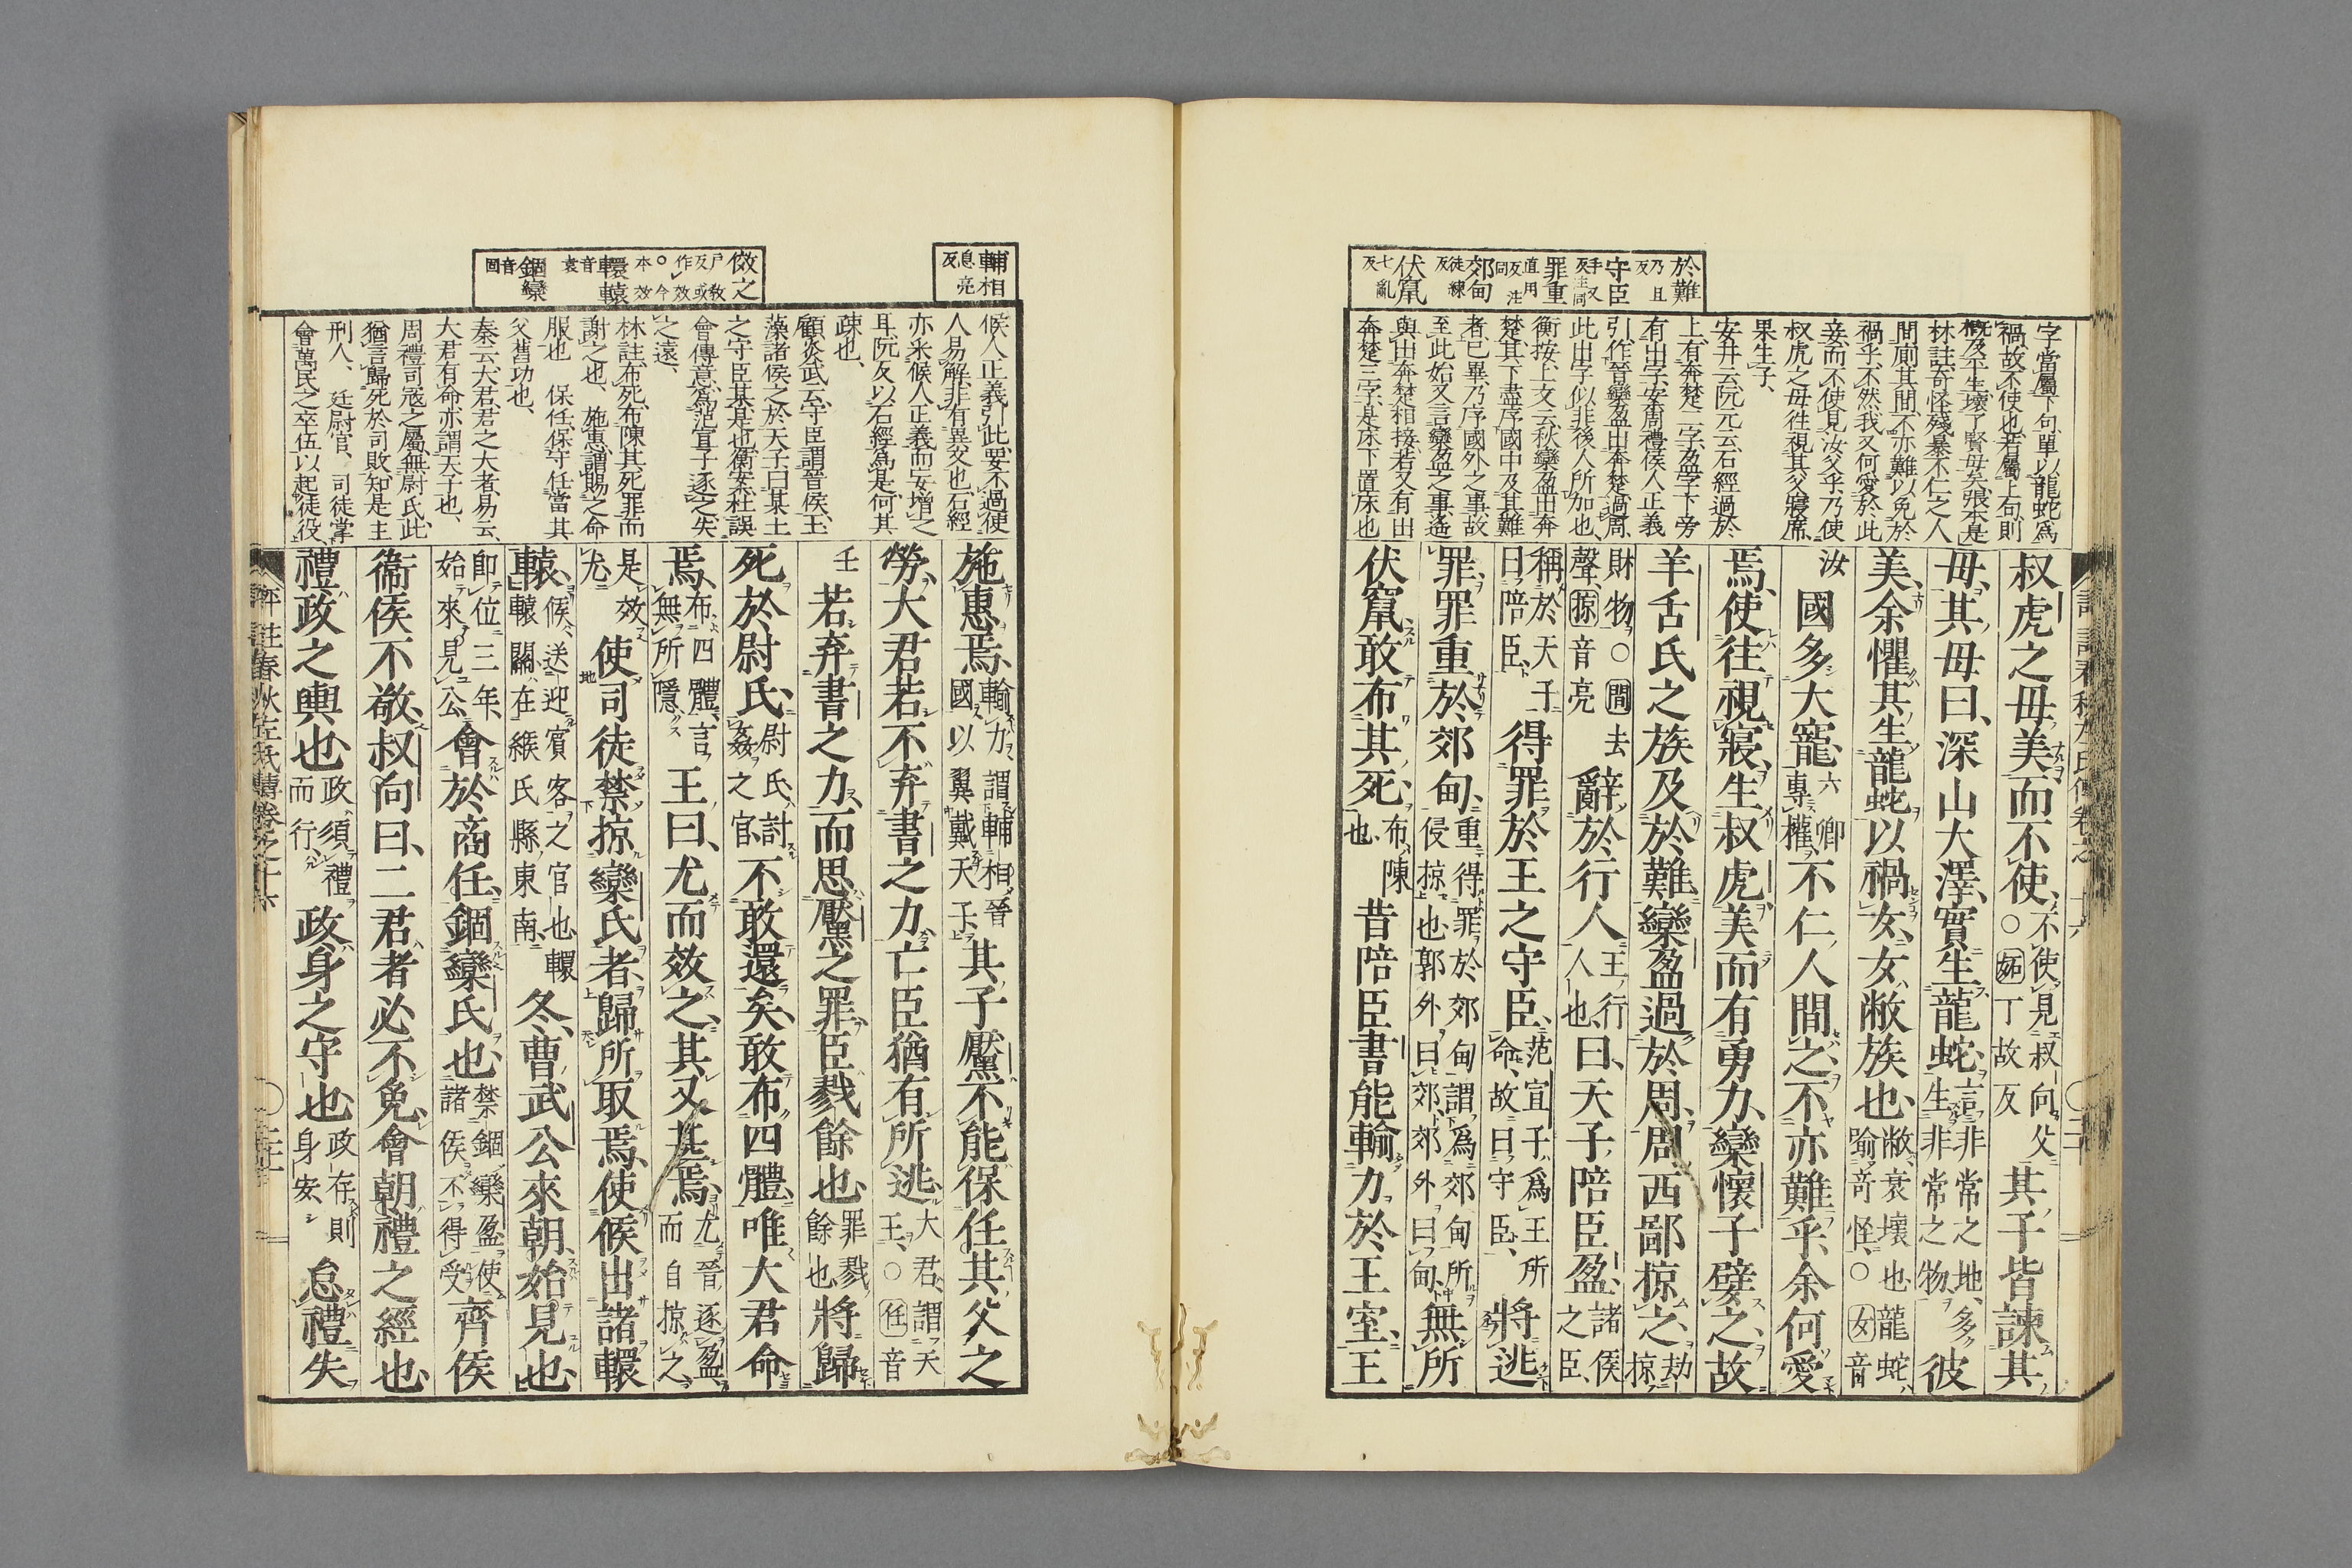 於難
乃且反
守臣
手又反注同
罪重
直用反注同
郊甸
徒練反
伏竄
七亂反
字當屬下句單以龍蛇為
禍故不使也若屬上句則
林註奇怪殘暴不仁之人
間廁其間不亦難以免於
禍乎不然我又何愛於此
妾而不使見汝父乎乃使
叔虎之母往視其父寢席
果生子
安井云阮元云石經過於
上有奔楚二字盈字下旁
有出字安周禮候人正義
引作晉欒盈出奔楚過周
此出字似非後人所加也
衡按上文云秋欒盈出奔
楚其下盡序國中及其難
者已畢乃序國外之事故
至此始又言欒盈之事遙
與出奔楚相接若又有出
奔楚三字是床下置床也
叔虎之母美而不使不使見叔向父○妬丁故反其子皆諫其
母其母曰深山大澤實生龍蛇言非常之地多生非常之物彼
美余懼其生龍蛇以禍女女敝族也敝衰壞也龍蛇喻奇怪○女音
汝國多大寵六卿專權不仁人間之不亦難乎余何愛
焉使往視寢生叔虎美而有勇力欒懷子嬖之故
羊舌氏之族及於難欒盈過於周周西鄙掠之劫掠
財物○間去聲掠音亮辭於行人王行人也曰天子陪臣盈諸侯之臣
稱於天子曰陪臣得罪於王之守臣范宣子為王所命故曰守臣將逃
罪罪重於郊甸重得罪於郊甸謂為郊甸所侵掠也郭外曰郊郊外曰甸無所
伏竄敢布其死布陳也昔陪臣書能輸力於王室王
輔相
息亮反
傚之
戶教反或作效○今本效
轘轅
音袁
錮欒
音固
候人正義引此要不過使
人易解非有異文也石經
亦釆候人正義而妄增之
耳阮反以石經為是何其
疎也
顧炎武云守臣謂晉侯玉
藻諸侯之於天子曰某土
之守臣某是也衡案杜誤
會傳意為范宣子逐之失
之遠
林註布死布陳其死罪而
謝之也　施惠謂賜之命
服也　保任保守任當其
父舊功也
秦云大君君之大者易云
大君有命亦謂天子也
周禮司寇之屬無尉氏此
猶言歸死於司敗知是主
刑人　廷尉官　司徒掌
會萬民之卒伍以起徒役
施惠焉輸力謂輔相晉國以翼戴天子其子黶不能保任其父之
勞大君若不弃書之力亡臣猶有所逃大君謂天王○任音
壬若弃書之力而思黶之罪臣戮餘也罪戮餘也將歸
死於尉氏尉氏討姦之官不敢還矣敢布四體唯大君命
焉布四體言無所隱王曰尤而效之其又甚焉尤晉逐盈而自掠之
是效尤使司徒禁掠欒氏者歸所取焉使候出諸轘
轅候送迎賓客之官也轘轅關在緱氏縣東南冬曹武公來朝始見也
即位三年始來見公會於商任錮欒氏也禁錮欒盈使諸侯不得受齊侯
衞侯不敬叔向曰二君者必不免會朝禮之經也
禮政之輿也政須禮而行政身之守也政存則身安怠禮失
評註春秋左氏傳卷之十六